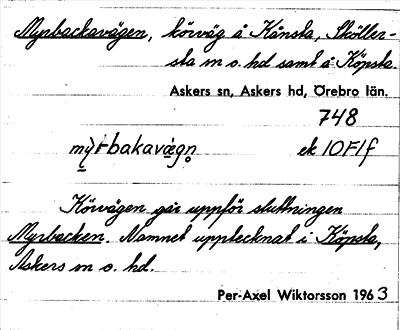 Myrbackavägen, körväg å Kånsta, Sköller-
sta sn o. hd samt å Köpsta.
Askers sn, Askers hd, Örebro län.
748
mỳ̱rbakavæ̱gn̥ ek 10F1f
Körvägen går uppför sluttningen
Myrbacken. Namnet upptecknat i Köpsta,
Askers sn o. hd.
Per-Axel Wiktorsson 1963